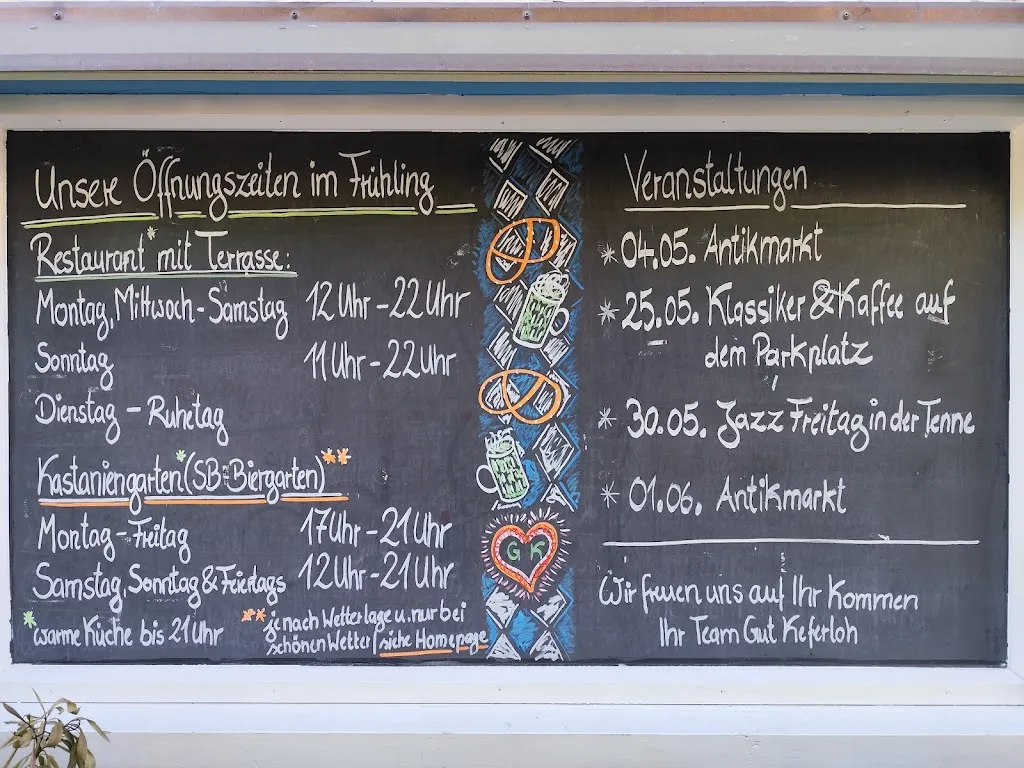 Unsere Öffnungszeiten im Frühling
Restaurant* mit Terrasse:
Montag, Mittwoch - Samstag 12 Uhr - 22 Uhr
Sonntag 11 Uhr - 22 Uhr
Dienstag - Ruhetag
Kastaniengarten* (SB-Biergarten)**
Montag - Freitag 17 Uhr - 21 Uhr
Samstag, Sonntag & Feiertags 12 Uhr - 21 Uhr
* warme Küche bis 21 Uhr
** je nach Wetterlage u. nur bei
schönen Wetter / siehe Homepage
G K
Veranstaltungen
* 04.05. Antikmarkt
* 25.05. Klassiker & Kaffee auf
dem Parkplatz
* 30.05. Jazz Freitag in der Tenne
* 01.06. Antikmarkt
Wir freuen uns auf Ihr Kommen
Ihr Team Gut Keferloh